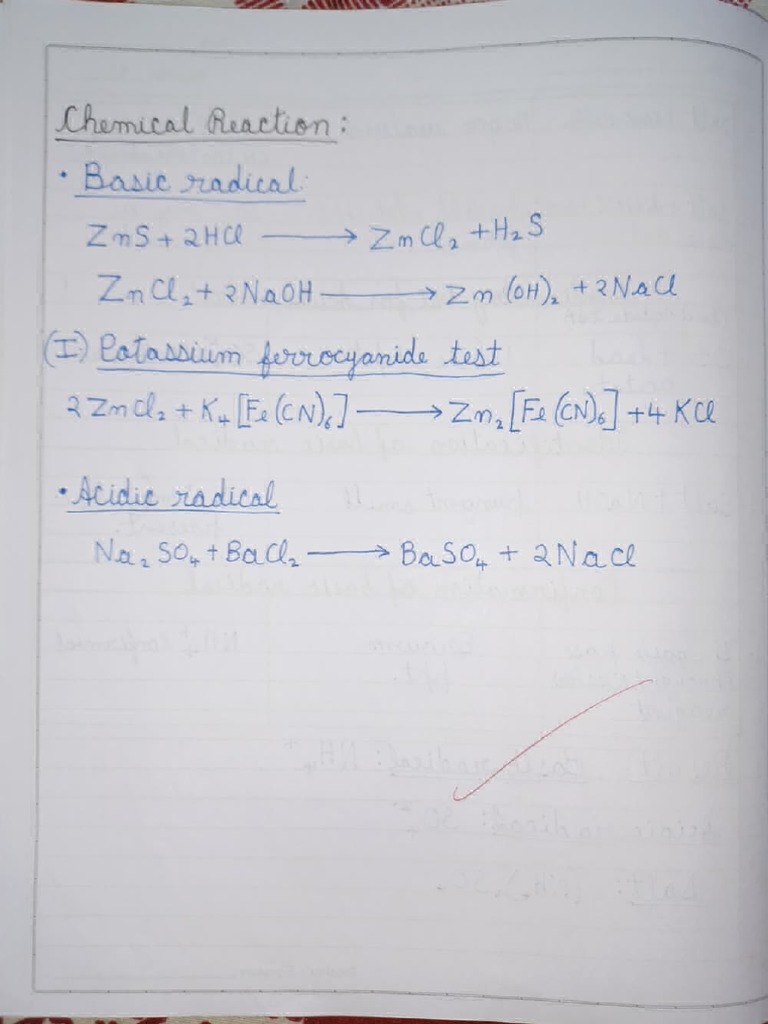 Chemical Reaction:
• Basic radical:
ZnS + 2HCl ⟶ ZnCl₂ + H₂S
ZnCl₂ + 2NaOH ⟶ Zn(OH)₂ + 2NaCl
(I) Potassium ferrocyanide test
2ZnCl₂ + K₄[Fe(CN)₆] ⟶ Zn₂[Fe(CN)₆] + 4KCl
• Acidic radical
Na₂SO₄ + BaCl₂ ⟶ BaSO₄ + 2NaCl